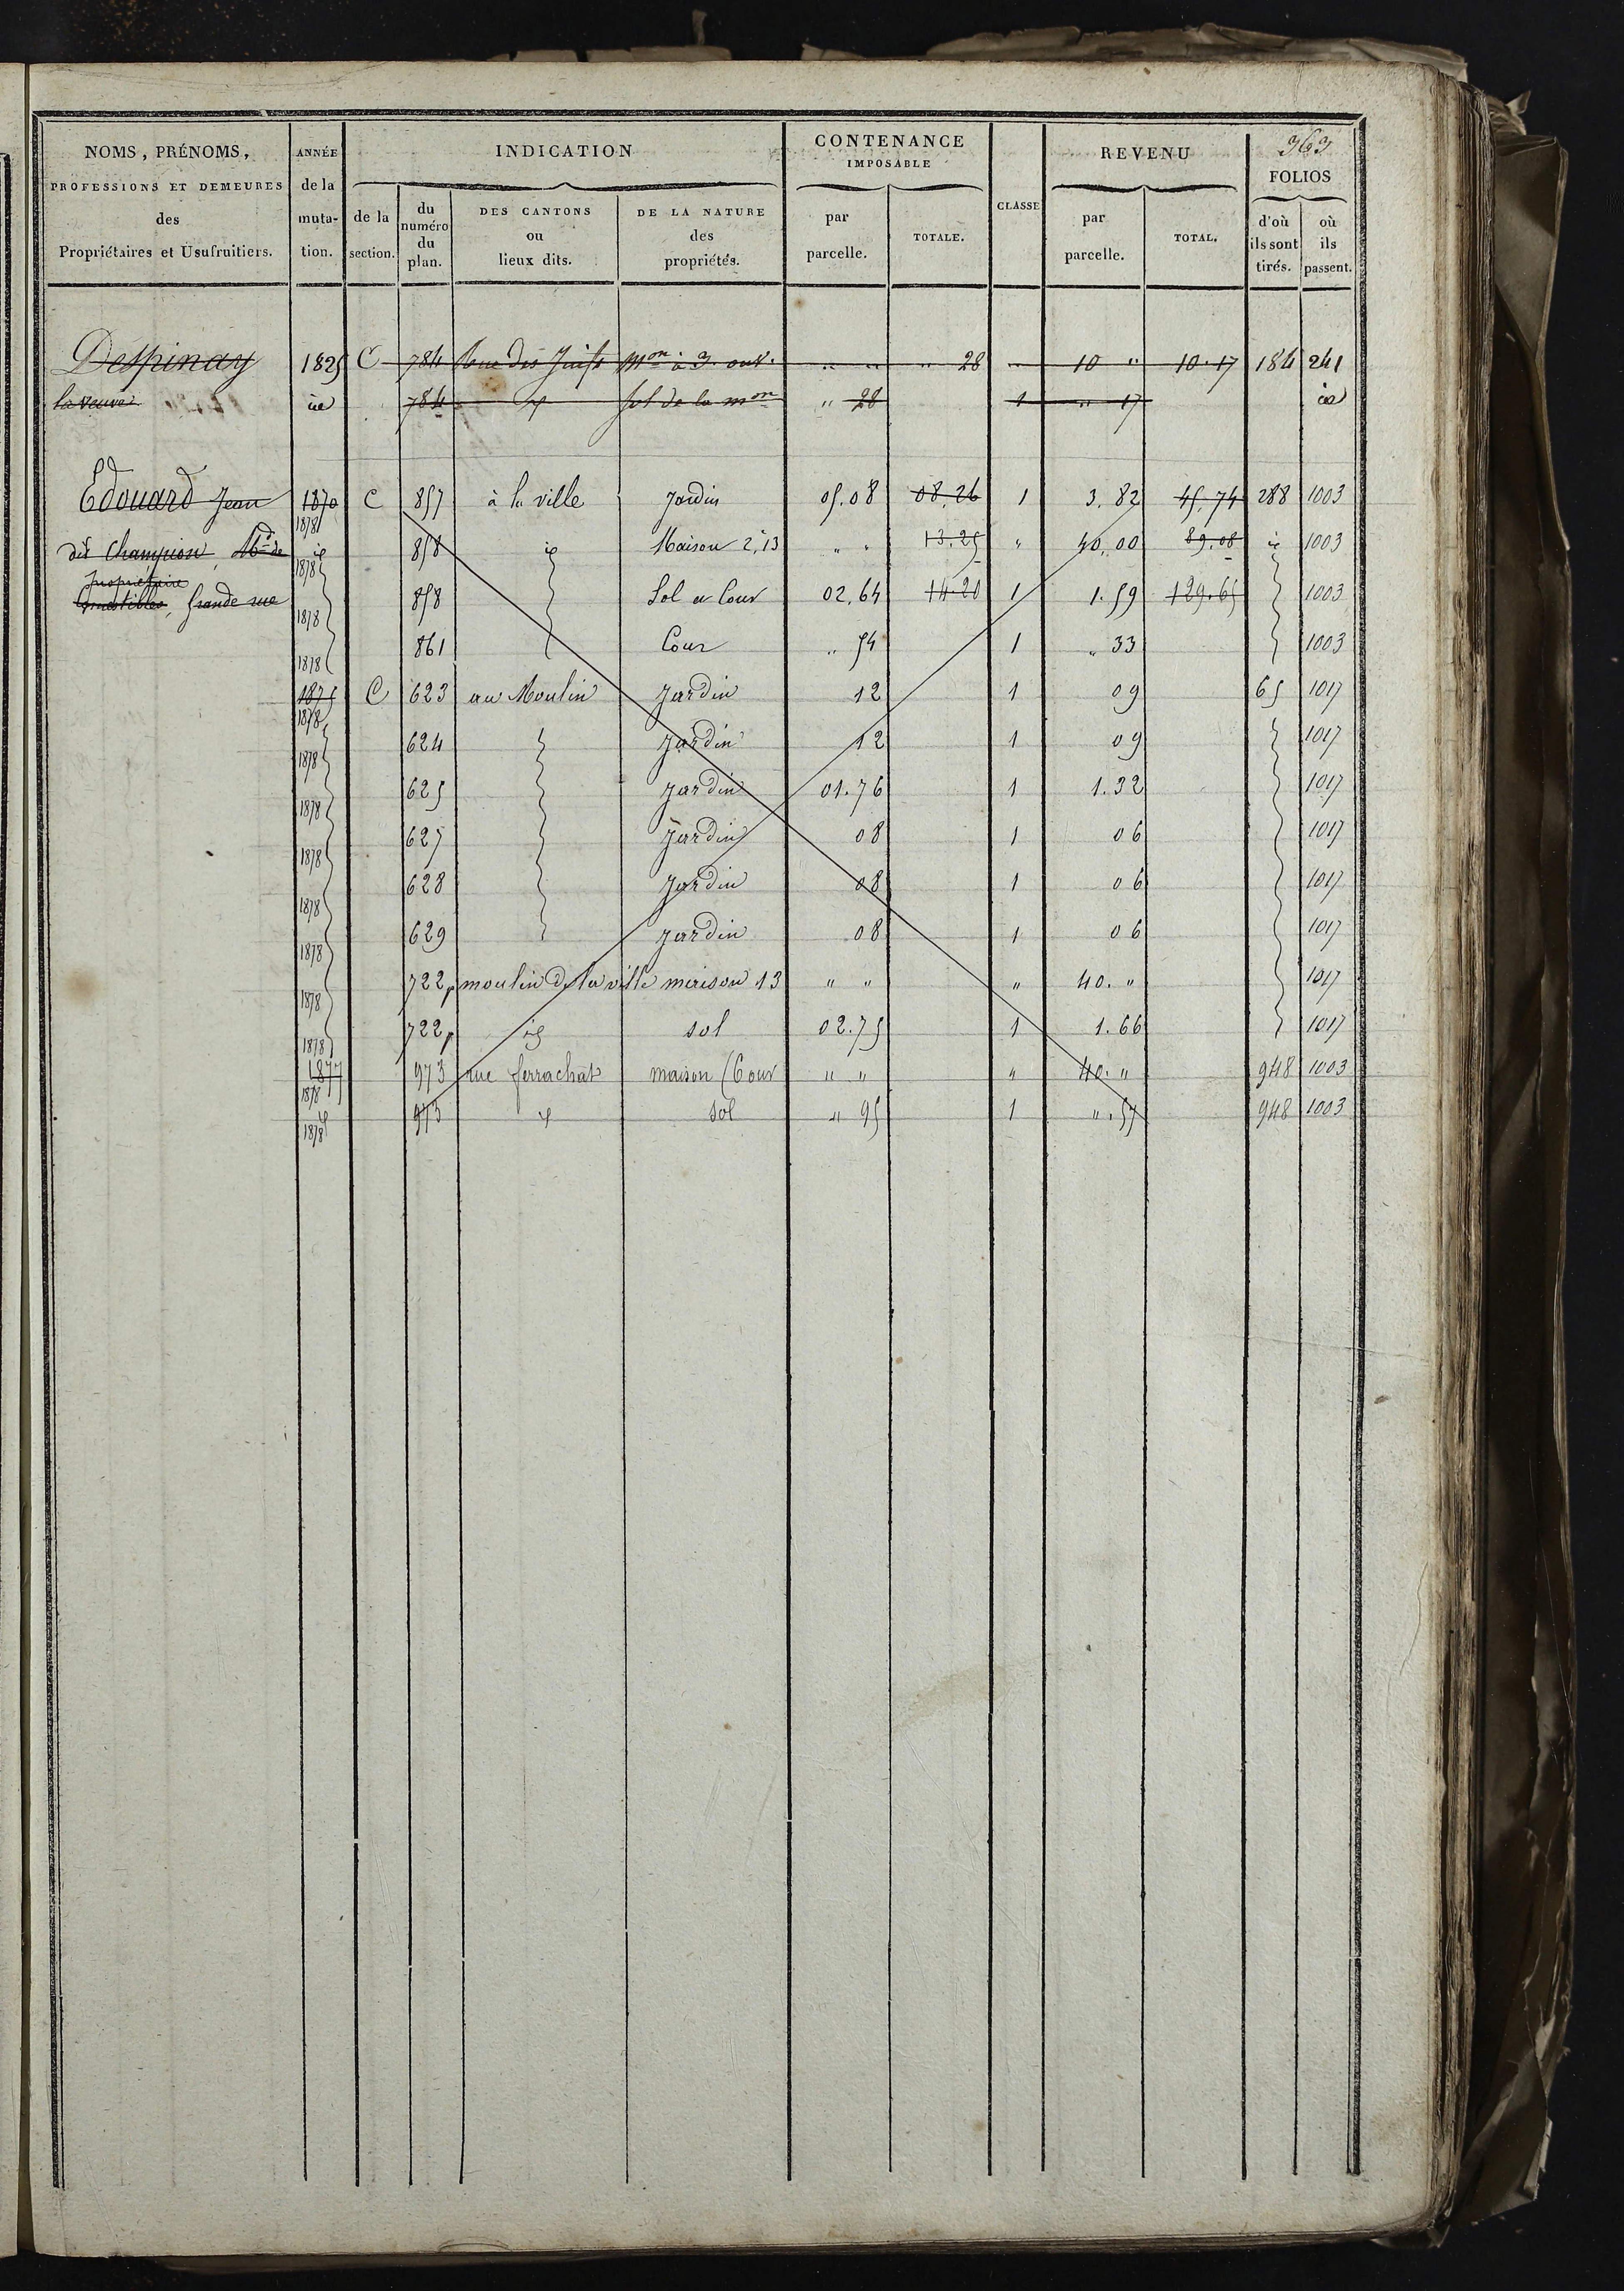 363
NOMS, PRÉNOMS, PROFESSIONS ET DEMEURES des Propriétaires et Usufruitiers. | ANNÉE de la muta-tion. | INDICATION | CONTENANCE IMPOSABLE | CLASSE | REVENU | FOLIOS
de la section. | du numéro du plan. | DES CANTONS ou lieux dits. | DE LA NATURE des propriétés. | par parcelle. | TOTALE. | par parcelle. | TOTAL. | d'où ils sont tirés. | où ils passent.
Despinay 1825 C 784 Rue des Juifs Mon à 3 ouv. " " " 28 " 10 " 10.17 184 241
la veuve id 784 id sol de la mon " 28 1 " 17 id
Edouard Jean 1870 1878 C 857 à la ville Jardin 05.08 08,26 1 3.82 45.74 288 1003
dit Champion, Md de id 1878 858 id Maison 2, 13 " " 13.25 " 40,00 89.08 id 1003
propriétaire
Comestibles, Grande rue 1878 858 Sol et Cour 02,64 14.20 1 1.59 129.65 1003
1878 861 Cour " 54 1 " 33 1003
1875 1878 C 623 au Moulin Jardin 12 1 09 65 1017
1878 624 Jardin 12 1 09 1017
1878 625 Jardin 01.76 1 1.32 1017
1878 627 Jardin 08 1 06 1017
1878 628 Jardin 08 1 06 1017
1878 629 Jardin 08 1 06 1017
1878 722p moulin de la ville maison 13 " " " 40. " 1017
1878 722p id sol 02.75 1 1.66 1017
1877 1878 973 rue ferrachat maison (6 ouv " " " 40. " 948 1003
id 1878 973 id sol " 95 1 " .57 948 1003